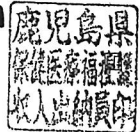 鹿児島県
保健医療福祉課
収入出納員印